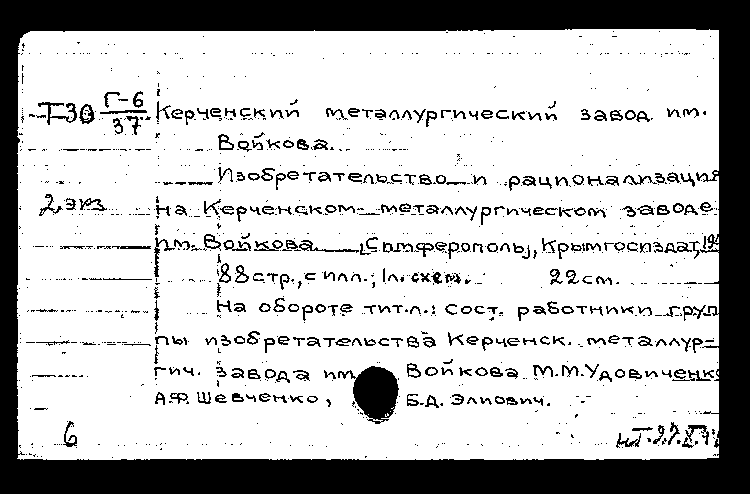 Т30 Г-6/37. Керченский металлургический завод им.
Войкова.
Изобретательство и рационализация
2 экз на Керченском металлургическом заводе
им. Войкова. [Симферополь], Крымгосиздат,
88 стр., с илл.; 1 л. схем. 22 см.
На обороте тит. л.: Сост. работники груп
пы изобретательства Керченск. металлур-
гич. завода им. Войкова М.М. Удовиченко
А.Ф. Шевченко, Б.Д. Элпович.
6